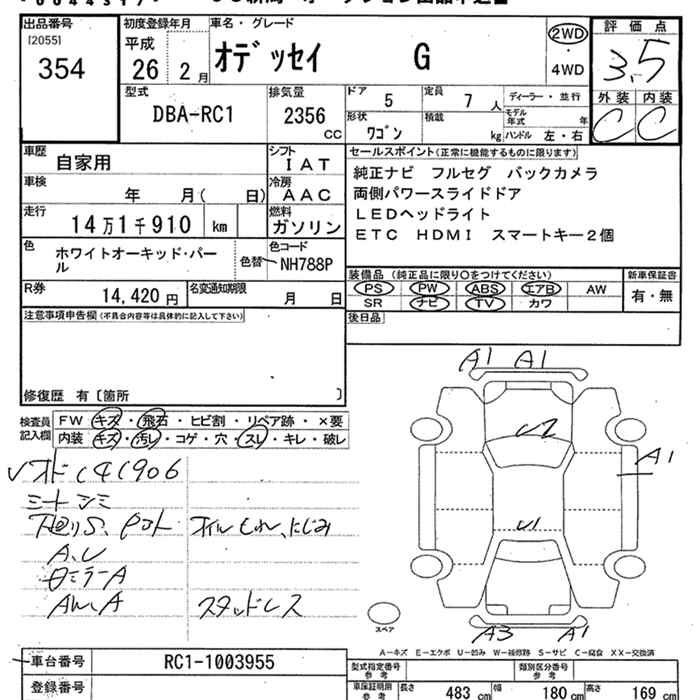 出品番号 初度登録年月 車名・グレード 評価点
[2055] 平成 2WD
354 26 2月 オデッセイ G ・ 3.5
4WD
型式 排気量 ドア 定員 ディーラー・並行 外装 内装
DBA-RC1 2356 5 7人 モデル年式 年 C C
CC 形状 ワゴン 積載 kg ハンドル 左・右
車歴 自家用 シフト IAT セールスポイント(正常に機能するものに限ります)
車検 年 月( 日) 冷房 AAC 純正ナビ フルセグ バックカメラ
両側パワースライドドア
走行 14万1千910 km 燃料 ガソリン LEDヘッドライト
色 ホワイトオーキッド・パール 色替 色コード NH788P ETC HDMI スマートキー2個
装備品(純正品に限り○をつけてください) 新車保証書
R券 14,420円 名変通知期限 月 日 PS PW ABS エアB AW 有・無
SR ナビ TV カワ
注意事項申告欄(不具合内容等は具体的に記入して下さい) 後日品
修復歴 有[箇所 ]
A1 A1
検査員 FW キズ・飛石・ヒビ割・リペア跡・×要
記入欄 内装 キズ・汚レ・コゲ・穴・スレ・キレ・破レ
U2
A1
オドC141906
シートシミ
下廻りS オイルもれ、にじみ
U1
A、U
ミラーA
AW、A スタッドレス
スペア
A3 A1
A-キズ E-エクボ U-凹み W-補修跡 S-サビ C-腐食 XX-交換済
車台番号 RC1-1003955 型式指定番号 参考 類別区分番号 参考
登録番号 車保証明用 参考 長さ 483 cm 幅 180 cm 高さ 169 cm